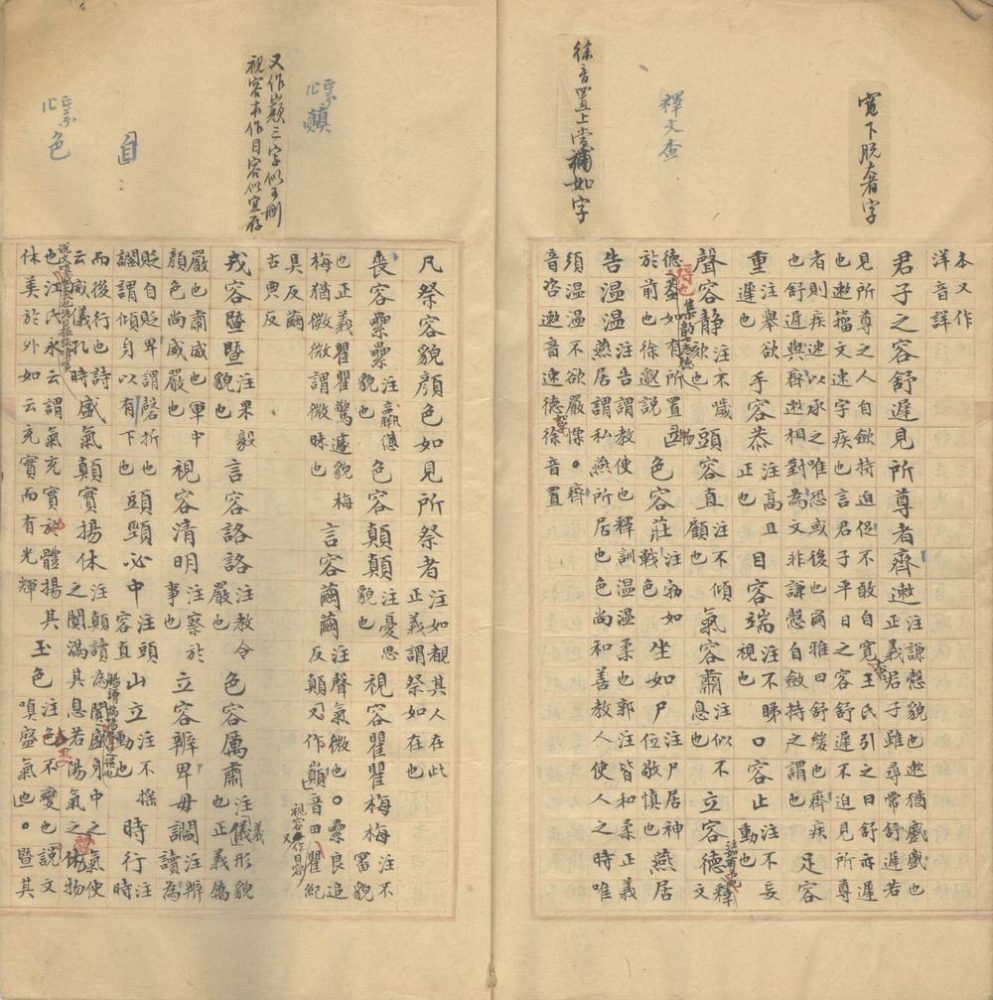 寬下脫奢字
釋文查
徐音置上當補如字
本又作
洋音詳
君子之容舒遲見所尊者齊遫
注謙慤貌也遫猶蹙蹙也
正義君子雖尋常舒遲若
見所尊之人自斂持迫促不敢自寬奢王氏引之曰舒亦遲
也遫籀文速字疾也言君子平日之容舒遲不迫見所尊
者則疾速以承之唯恐或後也爾雅曰舒緩也齊疾
也舒遲與齊遫相對為文非謙慤自斂持之謂也
足容
重注舉欲遲也手容恭注高且正也目容端注不睇視也口容止注不妄動也
聲容靜注不噦欬也頭容直注不傾顧也氣容肅注似不息也立容德注如有予也釋文
德得也
集韻
德蓋如有所置物
於前也徐邈說
色容莊注勃如戰色坐如尸注尸居神位敬慎也燕居
告溫溫
注告謂教使也釋訓溫溫柔也郭注皆和柔正義
燕居謂私燕所居也色尚和善教人使人之時唯
須溫溫不欲嚴慄。齊
音咨遫音速德徐音置
顛
又作巔三字似可刪
視容本作目容似宜存
目
色
凡祭容貌顏色如見所祭者注如覩其人在此正義謂祭如在也
喪容纍纍注羸憊貌也色容顛顛注憂思貌也視容瞿瞿梅梅注不審貌
也正義瞿瞿驚遽貌梅
梅猶微微謂微昧也
言容繭繭
注聲氣微也。纍良追
反顛又作巔音田瞿紀
視容本作目容
具反繭
古典反
戎容暨暨注果毅貌也言容詻詻注教令嚴也色容厲肅注儀形貌也正義厲
嚴也肅威也軍中
顏色尚威嚴也
視容清明注察於事也立容辨卑毋讇注辨讀為
貶自貶卑謂磬折也
讇謂傾身以有下也
頭頸必中注頭容直山立注不搖動也時行注時
而後行也詩
云威儀孔時
盛氣顛實揚休
注顛讀為闐盛身中之氣使
之闐滿其息若陽氣之休物
也江氏永云謂氣充實於體揚其
休美於外如云充實而有光輝
玉色
注色不變也說文
嗔盛氣也。暨其